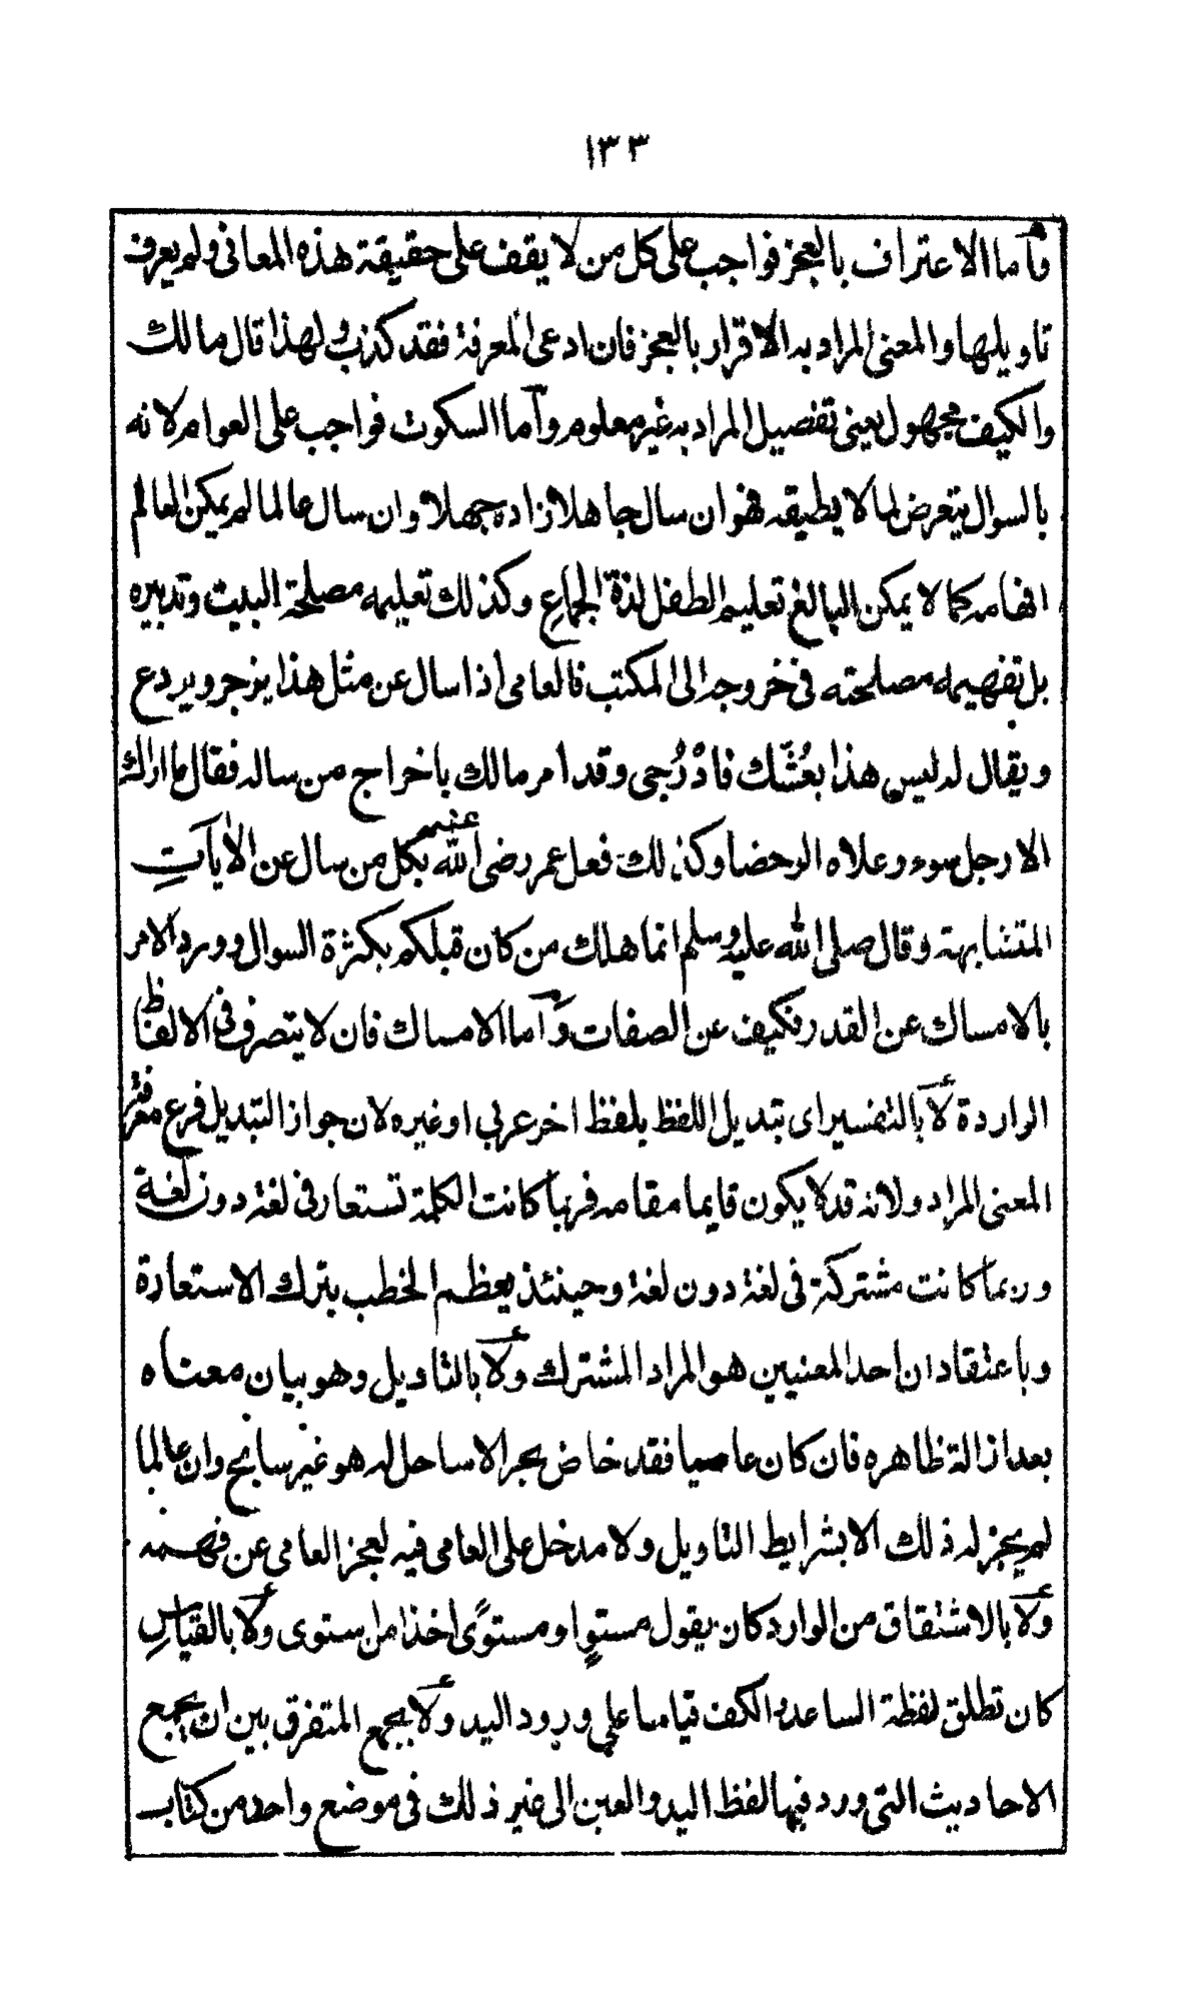 ١٣٣
وأما الاعتراف بالعجز فواجب على كل من لا يقف على حقيقة هذه المعانى ولم يعرف
تاويلها والمعنى المراد به الاقرار بالعجز فان ادعى المعرفة فقد كذب ولهذا قال مالك
والكيف مجهول يعنى تفصيل المراد به غير معلوم وأما السكوت فواجب على العوام لانه
بالسوال يتعرض لما لا يطيقه فهو ان سال جاهلا زاده جهلا وان سال عالما لم يمكن العالم
افهامه كما لا يمكن البالغ تعليم الطفل لذة الجماع وكذلك تعليمه مصلحة البيت وتدبيره
بل تفهيمه مصلحته فى خروجه الى المكتب فالعامى اذا سال عن مثل هذا يزجر ويردع
ويقال له ليس هذا بعُشّك فادْرُجى وقد امر مالك باخراج من ساله فقال ما اراك
الا رجل سوء وعلاه الرحضا وكذلك فعل عمر رضى الله عنه بكل من سال عن الآياتِ
المتشابهة وقال صلى الله عليه وسلم انما هلك من كان قبلكم بكثرة السوال وورد الامر
بالامساك عن القدر فكيف عن الصفات وأما الامساك فان لا يتصرف فى الالفاظ
الواردة لا بالتفسير اى تبديل اللفظ بلفظ اخر عربي او غيره لان جواز التبديل فرع معرفة
المعنى المراد ولانه قد لا يكون قايما مقامه فربما كانت الكلمة تستعار فى لغة دون لغة
وربما كانت مشتركة فى لغة دون لغة وحينئذ يعظم الخطب بترك الاستعارة
وباعتقاد ان احد المعنيين هو المراد المشترك ولا بالتاويل وهو بيان معناه
بعد ازالة ظاهره فان كان عاصيا فقد خاض بحر الا ساحل له هو غير سابح وان عالما
لم يجز له ذلك الا بشرايط التاويل ولا مدخل على العامى فيه لعجز العامى عن فهمه
ولا بالاشتقاق من الوارد كان يقول مستوٍ او مستوًى اخذا من استوى ولا بالقياسِ
كان تطلق لفظة الساعد والكف قياسا على ورود اليد ولا بجمع المتفرق بين ان يجمع
الاحاديث التى ورد فيها لفظ اليد والعين الى غير ذلك فى موضع واحد من كتاب